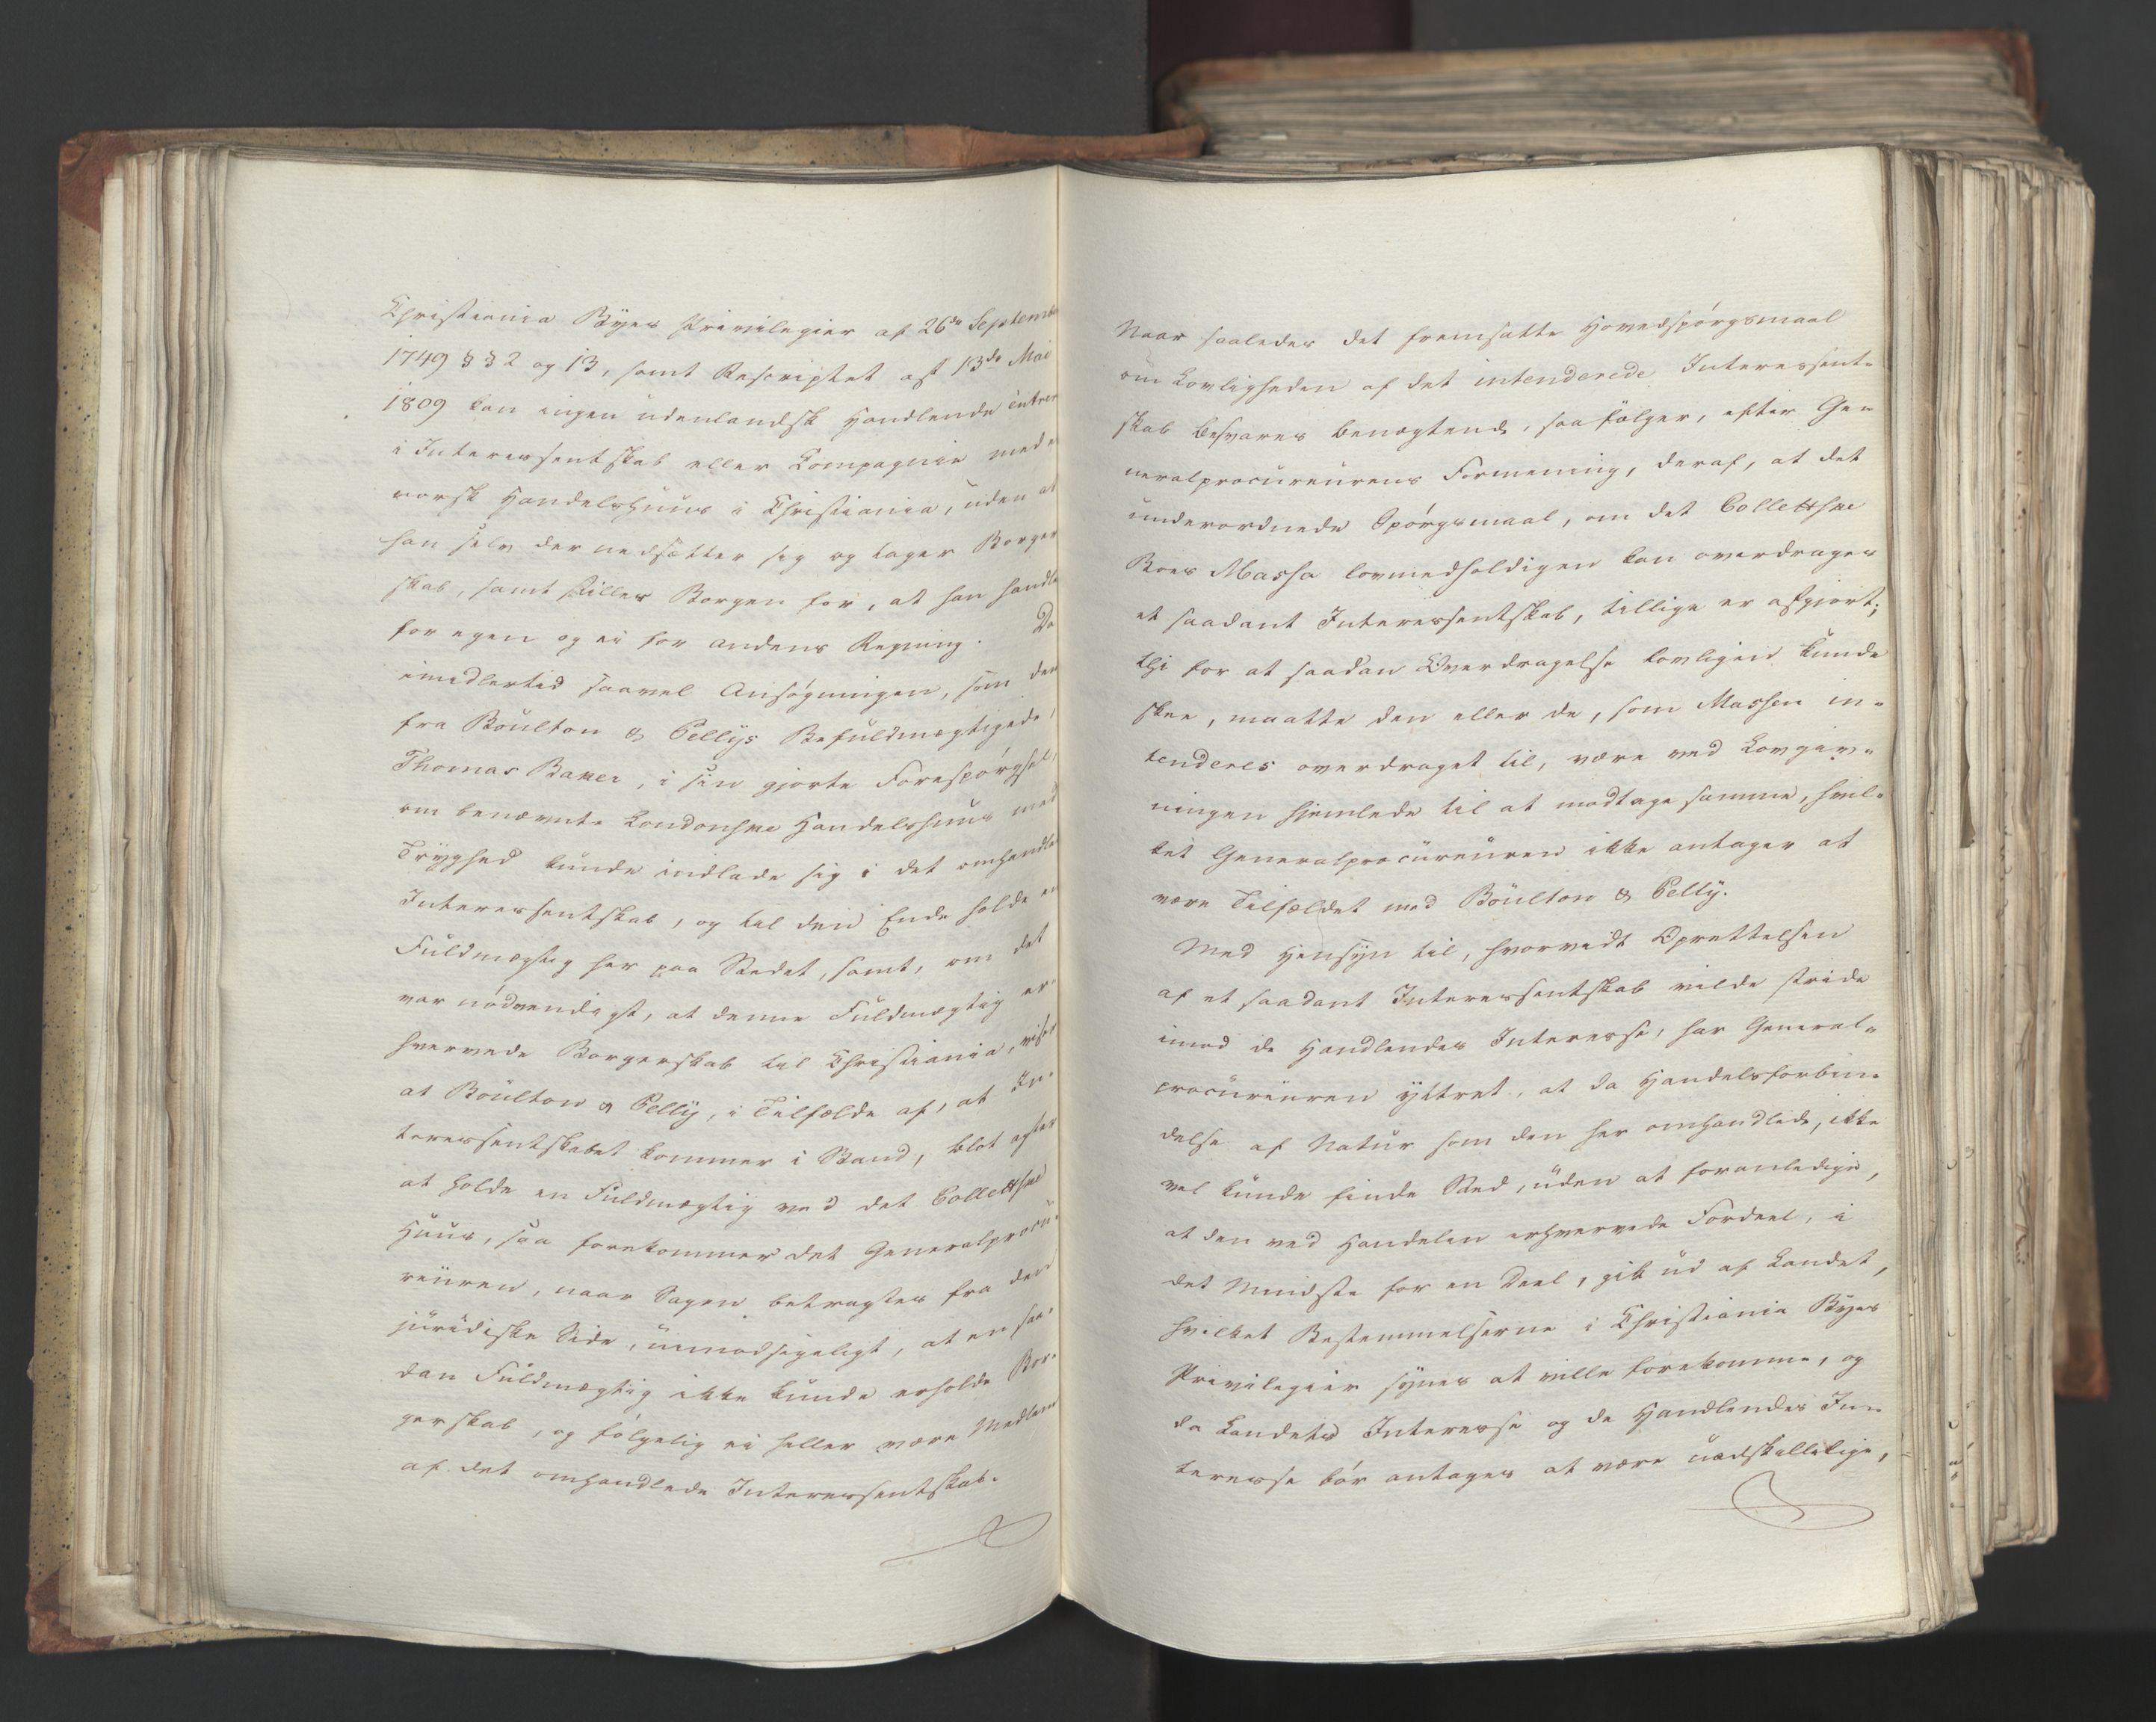 Christiania Byes Privilegier af 26de Septembr
1749 §§ 2 og 13, samt Rescriptet af 13de Mai
1809 kan ingen udenlandsk Handlende entrere
i Interessentskab eller Compagnie med et
norsk Handelshuus i Christiania, uden at
han selv der nedsætter sig og tager Borger
skab, samt stiller Borgen for, at han handler
for egen og ei for andens Regning. Da
imidlertid saavel Ansøgningen, som den
fra Boulton & Pellys Befuldmægtigede,
Thomas Baker, i sin gjorte Forespørgsel,
om benævnte Londonske Handelshuus med
Tryghed kunde indlade sig i det omhandlede
Interessentskab, og til den Ende holde en
Fuldmægtig her paa Stedet, samt, om det
var nødvendigt, at denne Fuldmægtig er-
hvervede Borgerskab til Christiania, viser
at Boulton & Pelly, i Tilfælde af, at In-
teressentskabet kommer i Stand, blot agter
at holde en Fuldmægtig ved det Collettske
Huus, saa forekommer det Generalprocu-
reuren, naar Sagen betragtes fra den
juridiske Side, uimodsigeligt, at en saa-
dan Fuldmægtig ikke kunde erholde Bor-
gerskab, og følgelig ei heller være Medlem
af det omhandlede Interessentskab.
Naar saaledes det fremsatte Hovedspørgsmaal
om Lovligheden af det intenderede Interessent-
skab besvares benægtende, saa følger, efter Ge-
neralprocureurens Formening, deraf, at det
underordnede Spørgsmaal, om det Collettske
Boes Massa lovmedholdigen kan overdrages
et saadant Interessentskab, tillige er afgjort;
thi for at saadan Overdragelse lovligen kunde
skee, maatte den eller de, som Massen in-
tenderes overdraget til, være ved Lovgiv-
ningen hjemlede til at modtage samme, hvil-
ket Generalprocureuren ikke antager at
være Tilfældet med Boulton & Pelly.
Med Hensyn til, hvorvidt Oprettelsen
af et saadant Interessentskab vilde stride
imod de Handlendes Interesse, har General-
procureuren yttret, at da Handelsforbin-
delse af Natur som den her omhandlede, ikke
vel kunde finde Sted, uden at foranledige,
at den ved Handelen erhvervede Fordeel, i
det Mindste for en Deel, gik ud af Landet,
hvilket Bestemmelserne i Christiania Byes
Privilegier synes at ville forekomme, og
da Landets Interesse og de Handlendes In-
teresse bør antages at være uadskillelige,